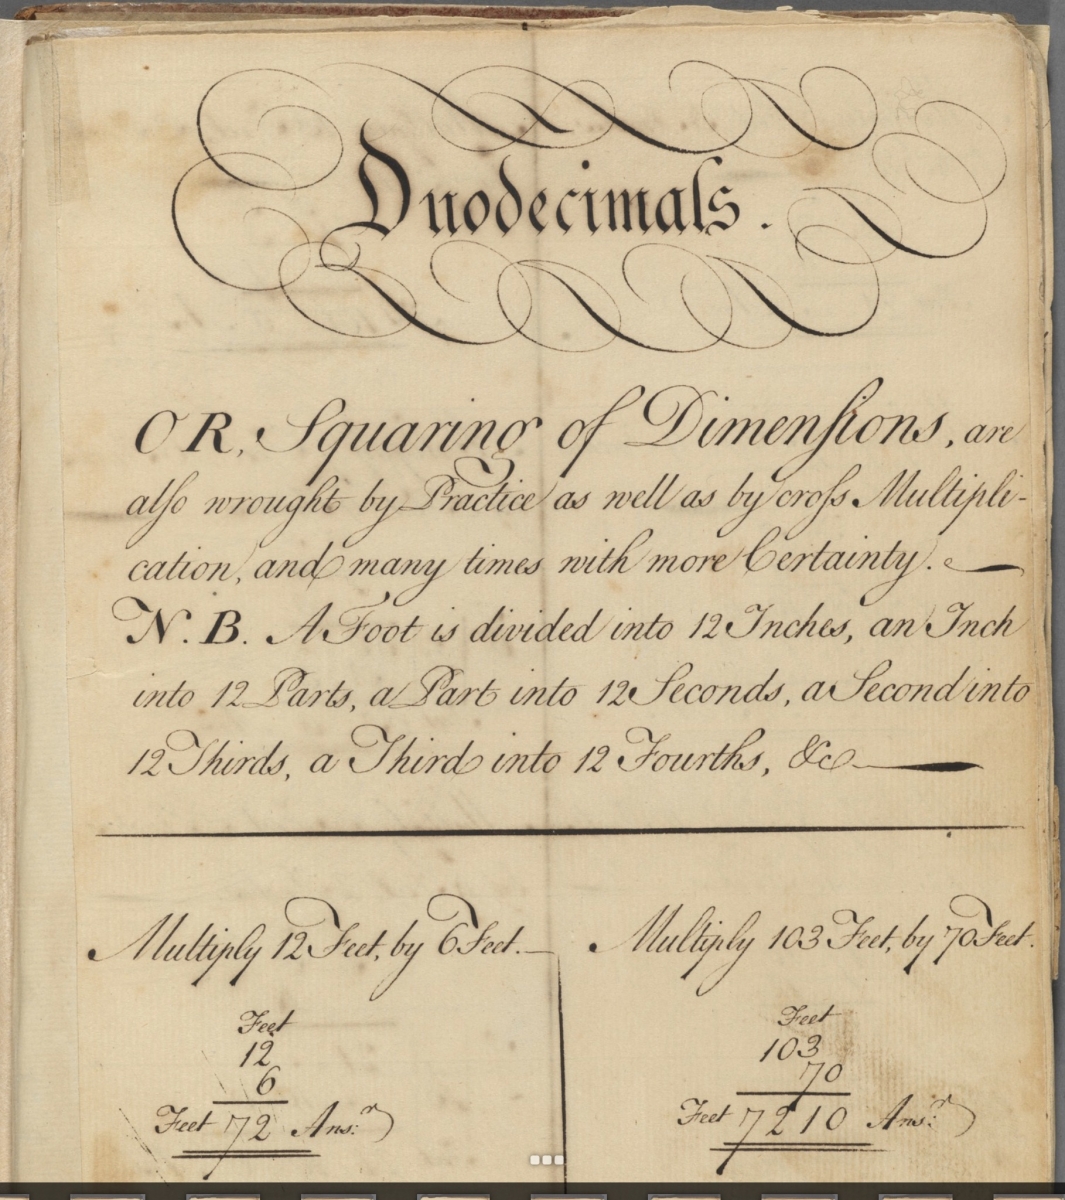 Duodecimals.
OR, Squaring of Dimenſions, are
alſo wrought by Practice as well as by croſs Multipli-
cation, and many times with more Certainty.
N.B. A Foot is divided into 12 Inches, an Inch
into 12 Parts, a Part into 12 Seconds, a Second into
12 Thirds, a Third into 12 Fourths, &c
Multiply 12 Feet, by 6 Feet.
Feet
12
6
Feet 72 Ans:r
Multiply 103 Feet, by 70 Feet.
Feet
103
70
Feet 7210 Ans:r